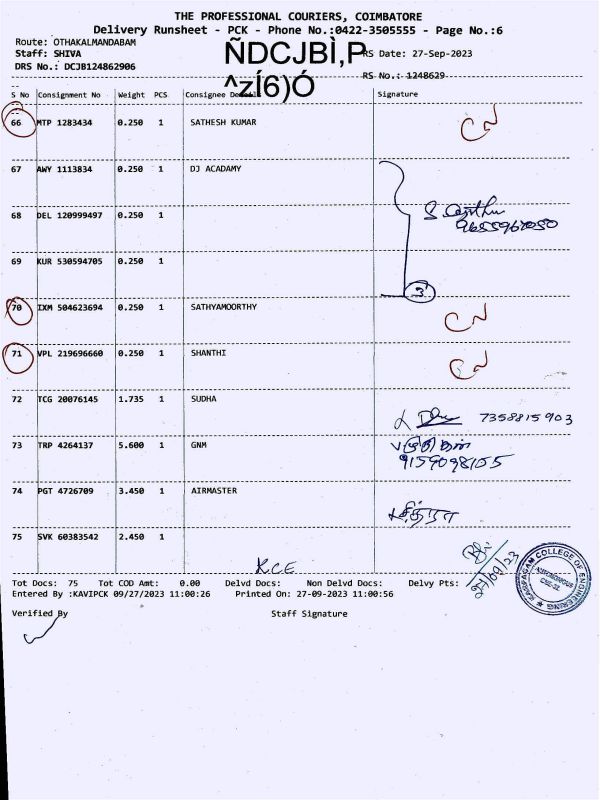 THE PROFESSIONAL COURIERS, COIMBATORE
Delivery Runsheet - PCK - Phone No.:0422-3505555 - Page No.:6
Route: OTHAKALMANDABAM
Staff: SHIVA
DRS No.: DCJB124862906
ÑDCJBÌ,P
^zÍ6)Ó
RS Date: 27-Sep-2023
RS No.: 1248629
S No Consignment No Weight PCS Consignee Details Signature
66 MTP 1283434 0.250 1 SATHESH KUMAR CN
67 AWY 1113834 0.250 1 DJ ACADAMY
68 DEL 120999497 0.250 1
9655967050
69 KUR 530594705 0.250 1
3
70 IXM 504623694 0.250 1 SATHYAMOORTHY CN
71 VPL 219696660 0.250 1 SHANTHI CN
72 TCG 20076145 1.735 1 SUDHA 7358815903
73 TRP 4264137 5.600 1 GNM
9159098155
74 PGT 4726709 3.450 1 AIRMASTER
75 SVK 60383542 2.450 1
K.C.E
27/09/23
KARPAGAM COLLEGE OF ENGINEERING
AUTONOMOUS
CBE-32
Tot Docs: 75 Tot COD Amt: 0.00 Delvd Docs: Non Delvd Docs: Delvy Pts:
Entered By :KAVIPCK 09/27/2023 11:00:26 Printed On: 27-09-2023 11:00:56
Verified By Staff Signature